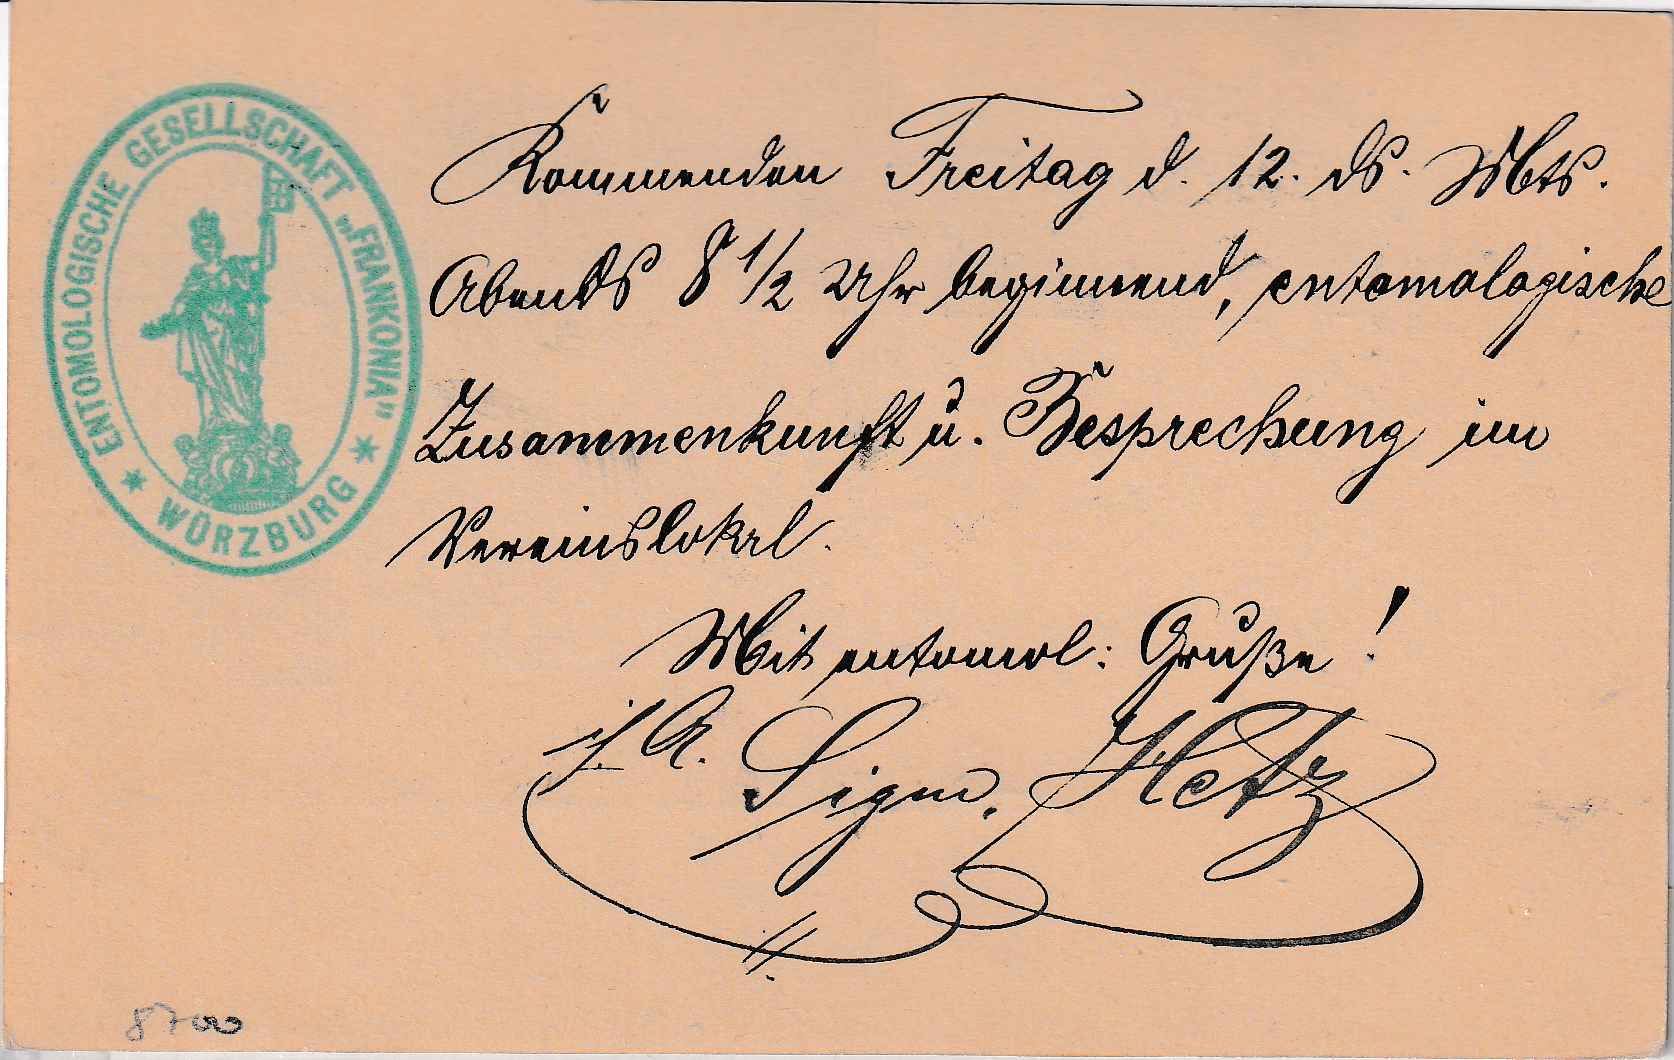 ENTOMOLOGISCHE GESELLSCHAFT „FRANKONIA"
* WÜRZBURG *
Kommenden Freitag d. 12. ds. Mts.
Abends 8 1/2 Uhr beginnend, entomologische
Zusammenkunft u. Besprechung im
Vereinslokal.
Mit entomol: Gruße!
i. A. Sigm. Hetz
8700